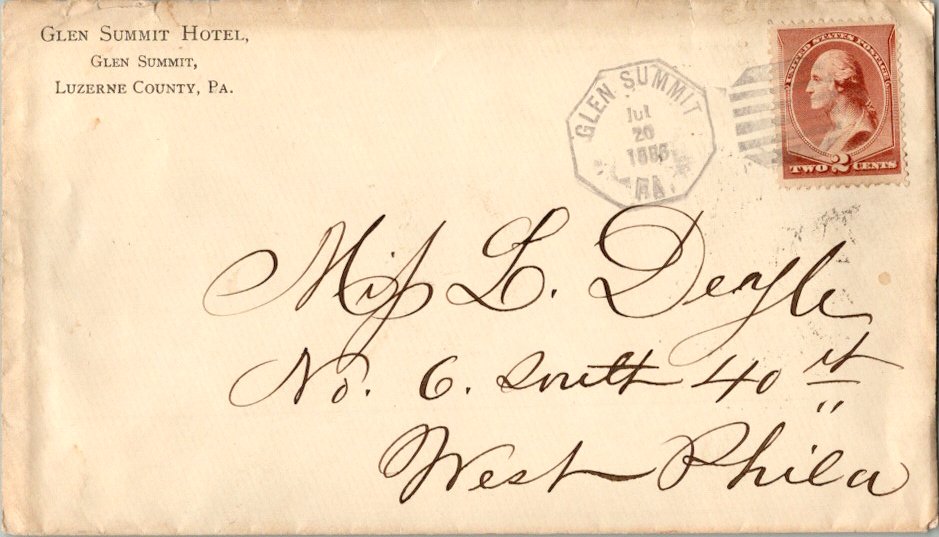 GLEN SUMMIT HOTEL,
GLEN SUMMIT,
LUZERNE COUNTY, PA.
GLEN SUMMIT
JUL
20
PA
UNITED STATES POSTAGE
TWO 2 CENTS
Miss L. Deyle
No. 6. South 40 st
West Phila